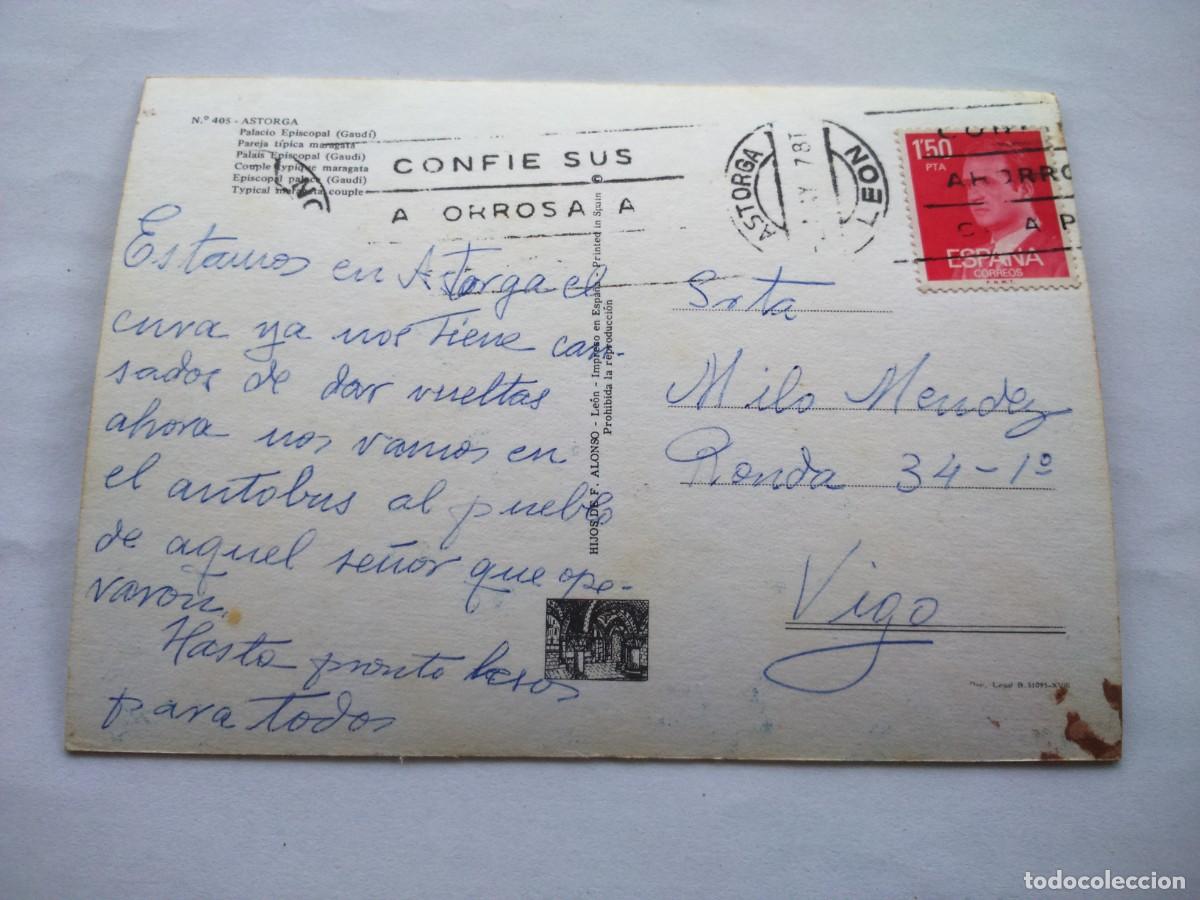 N.º 405 - ASTORGA
Palacio Episcopal (Gaudí)
Pareja típica maragata
Palais Episcopal (Gaudi)
Couple typique maragata
Episcopal palace (Gaudi)
Typical maragata couple
CONFIE SUS
A ORROS A A
ASTORGA
78
LEON
1'50
PTA
AHORRO
A P
ESPAÑA
CORREOS
F.N.M.T.
Estamos en Astorga el
cura ya nos tiene can-
sados de dar vueltas
ahora nos vamos en
el autobus al pueblo
de aquel señor que ope-
raron.
Hasta pronto besos
para todos
HIJOS DE F. ALONSO - León - Impreso en España - Printed in Spain ©
Prohibida la reproducción
Srta
Milo Mendez
Ronda 34-1º
Vigo
Dep. Legal B. 51095-XVIII
todocoleccion